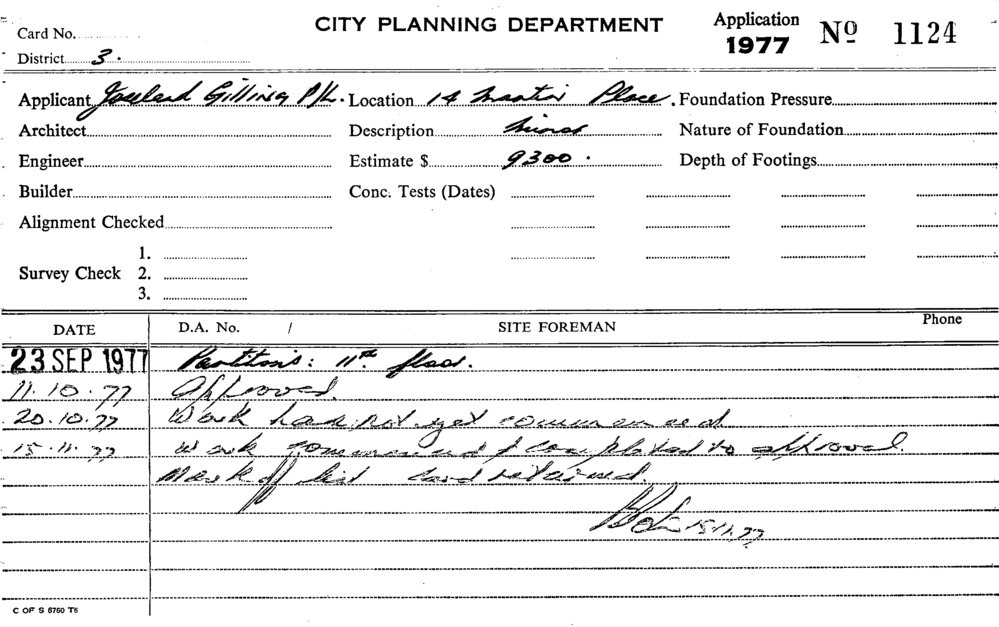 CITY PLANNING DEPARTMENT
Application
1977 Nº 1124
Card No.
District 3.
Applicant Joseland Gilling P/L. Location 14 Martin Place. Foundation Pressure
Architect Description Minor Nature of Foundation
Engineer Estimate $ 9300. Depth of Footings
Builder Conc. Tests (Dates)
Alignment Checked
Survey Check 1.
2.
3.
DATE D.A. No. / SITE FOREMAN Phone
23 SEP 1977 Partitions: 11th floor.
11.10.77 Approved.
20.10.77 Work has not yet commenced
15.11.77 Work commenced & completed to approval.
Mark off list card retained.
15.11.77
C OF S 5760 T6